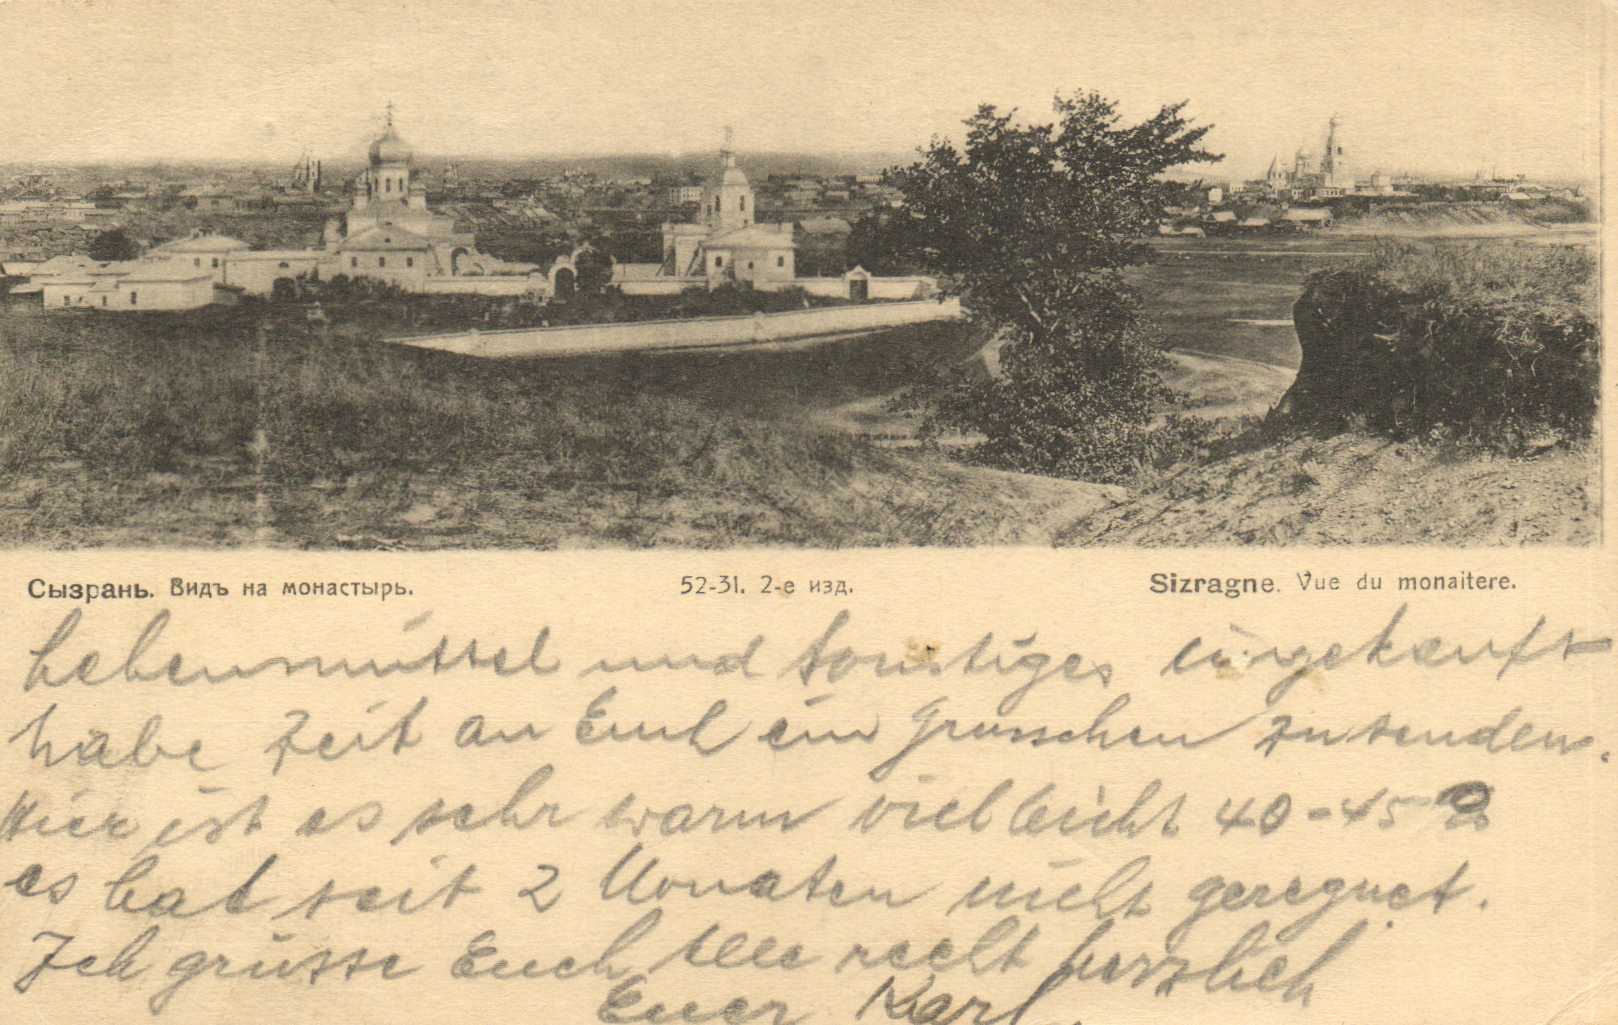 Сызрань. Видъ на монастырь. 52-31. 2-е изд. Sizragne. Vue du monaitere.
Lebensmittel und Sonstiges eingekauft
habe Zeit an Euch ein Grusschen zu senden.
Hier ist es sehr warm vielleicht 40-45°
es hat seit 2 Monaten nicht geregnet.
Ich grüsse Euch Alle recht herzlich
Euer Karl